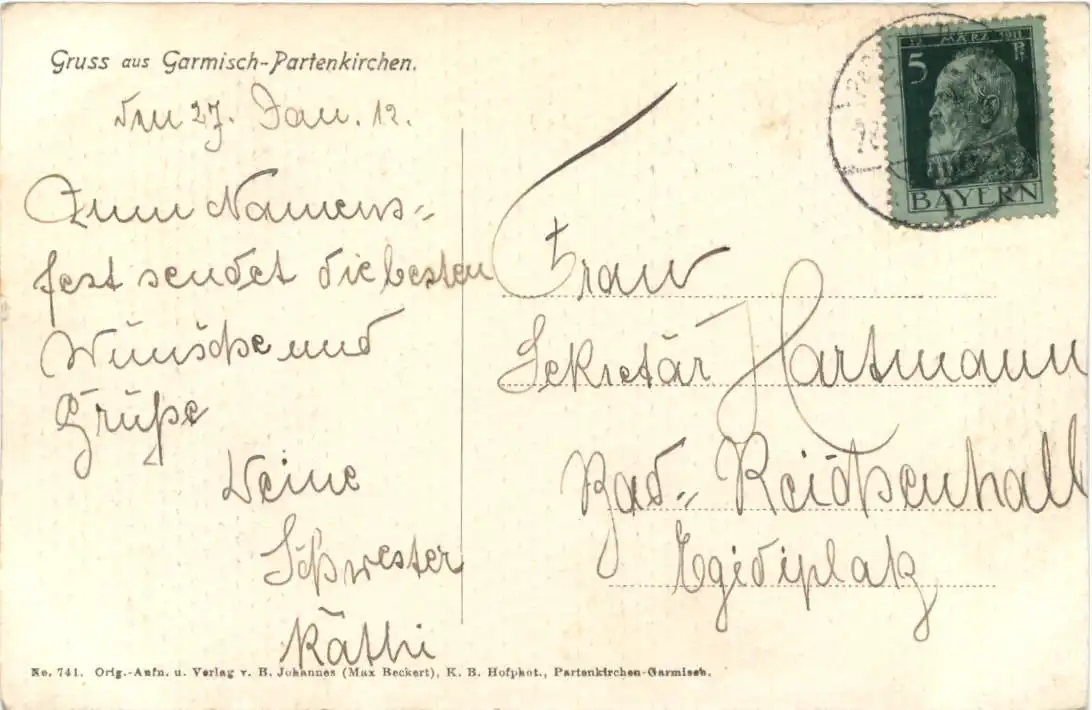 Gruss aus Garmisch-Partenkirchen.
den 27. Jan. 12.
Zum Namens=
fest sendet die besten
Wünsche und
Grüße
Deine
Schwester
Käthi
12. MÄRZ 1911
5 Pf
BAYERN
Frau
Sekretär Hartmann
Bad= Reichenhall
Egidiplatz
No. 741. Orig.-Aufn. u. Verlag v. B. Johannes (Max Beckert), K. B. Hofphot., Partenkirchen-Garmisch.